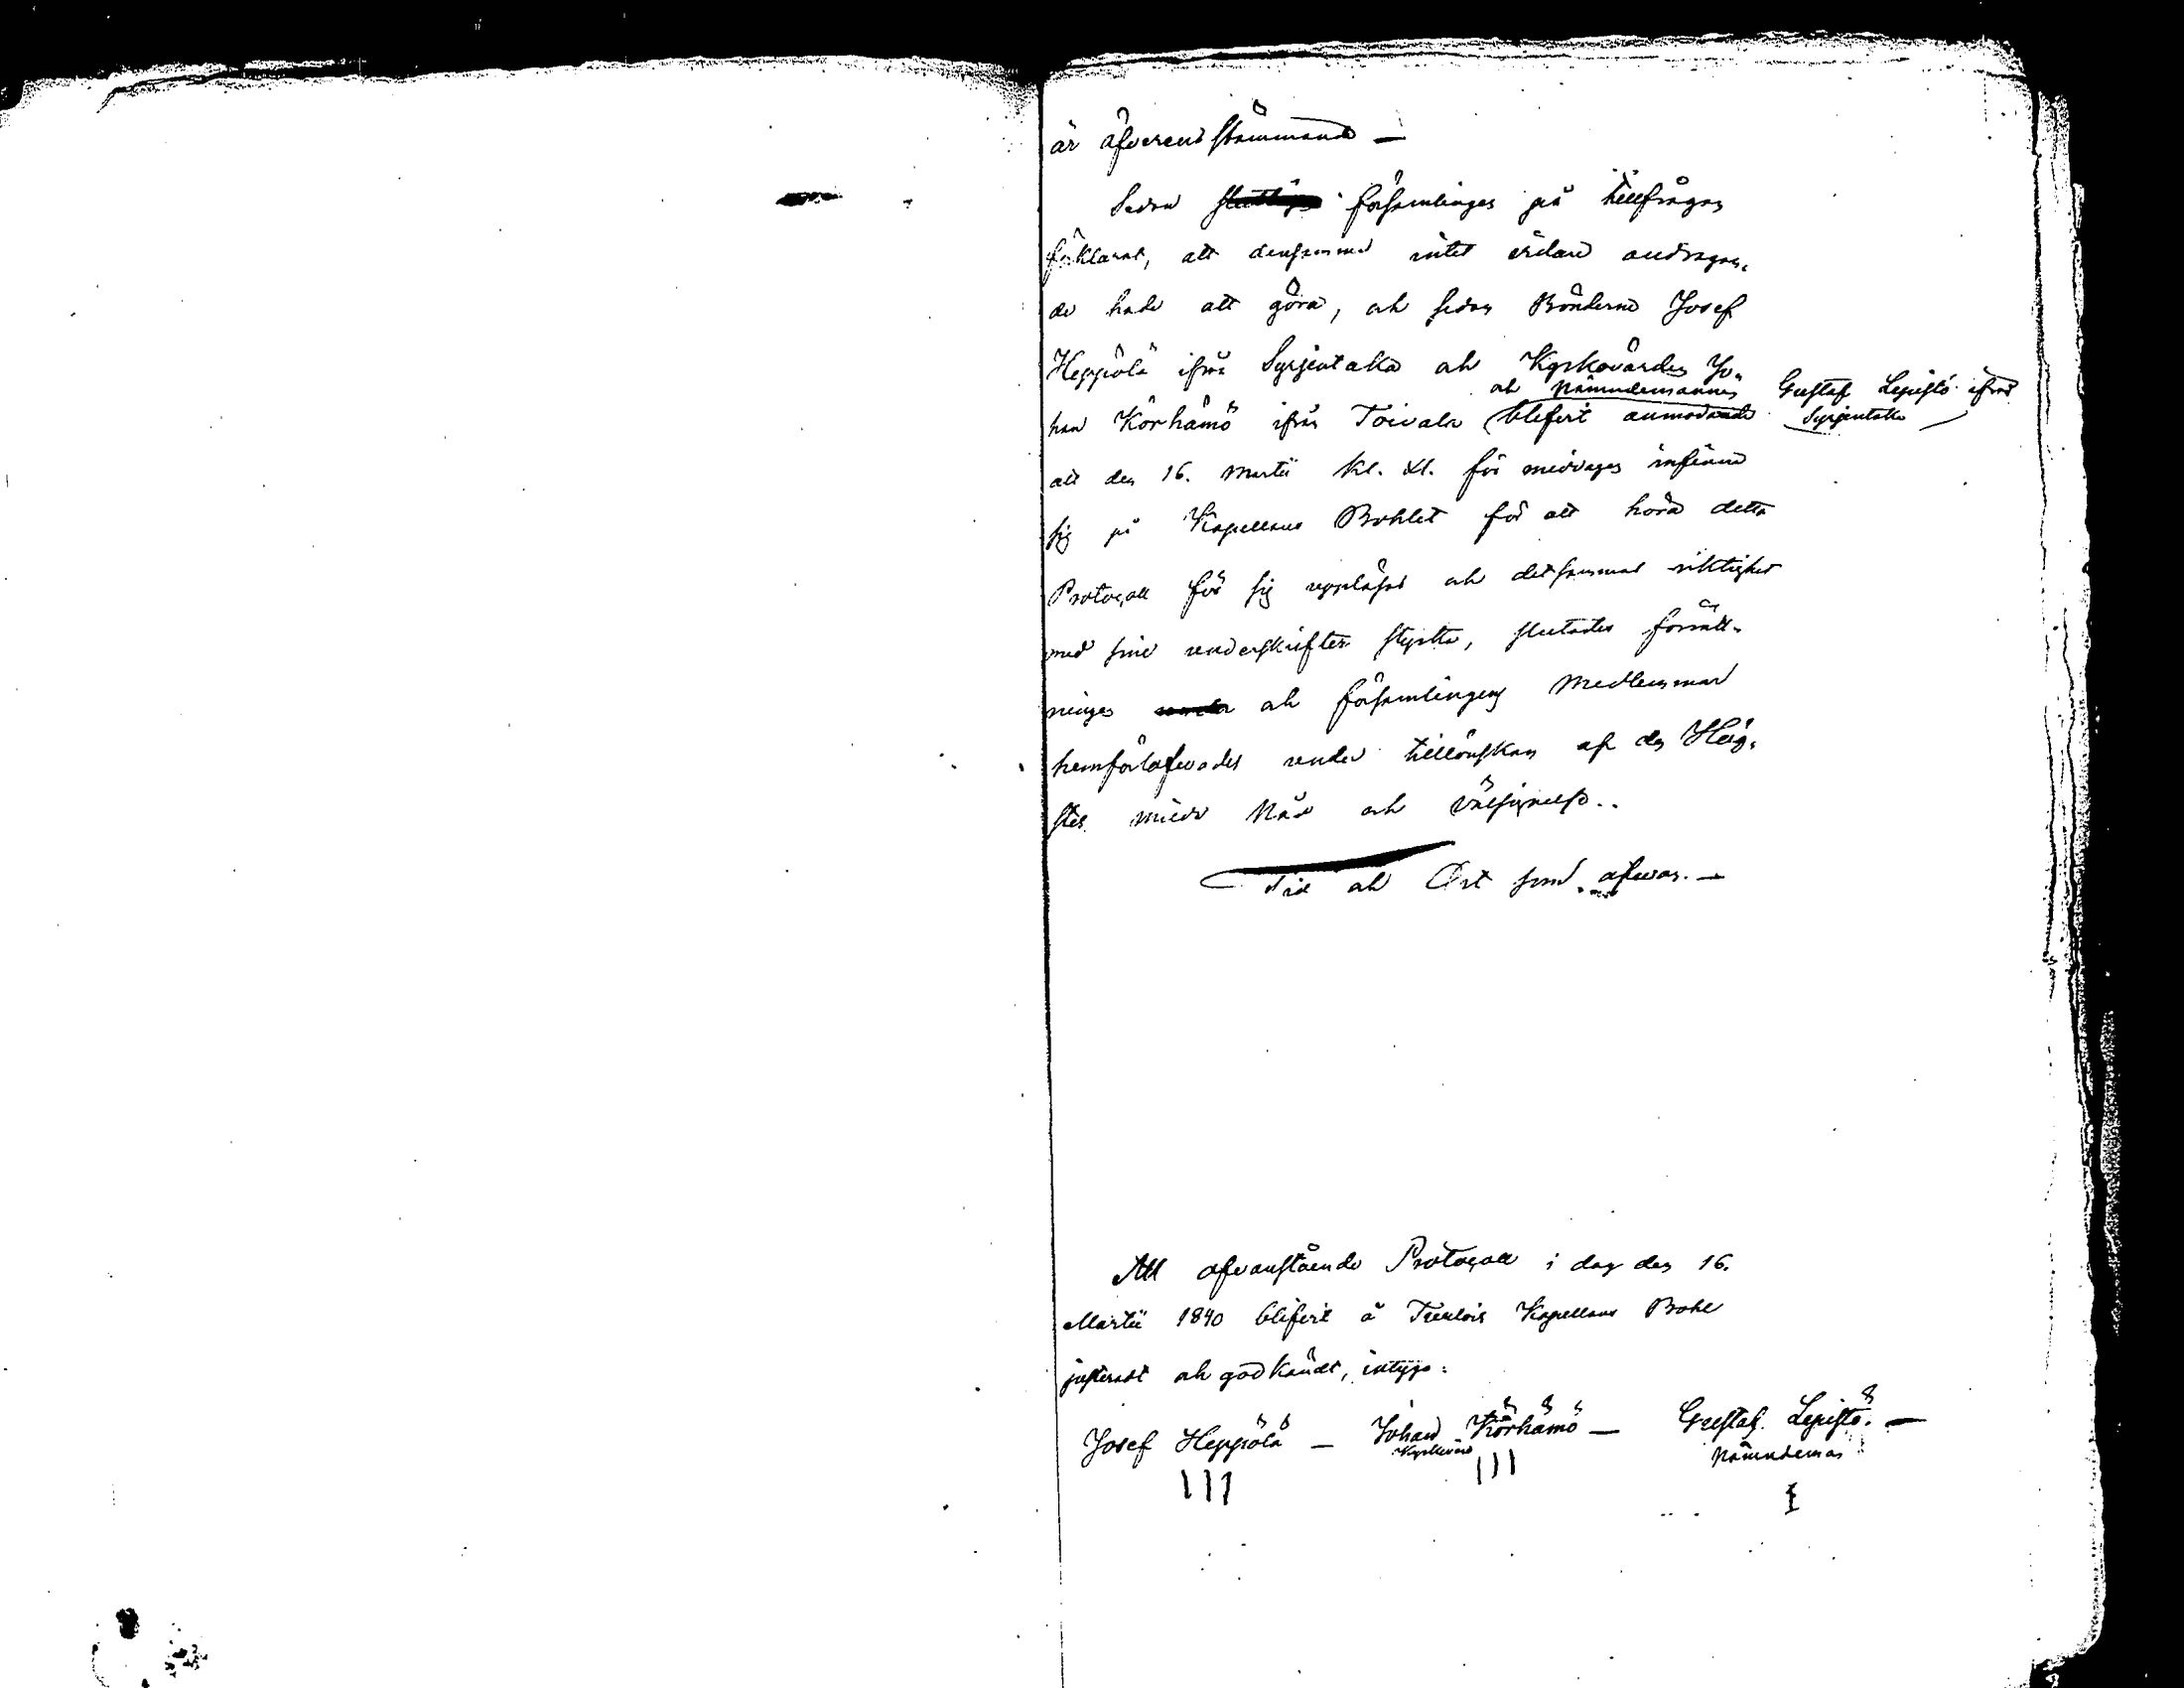 är öfverensstämmande —
Sedan församlingen på tillfrågan
förklarat, att densamma intet vidare andragan-
de hade att göra, och sedan Bönderne Josef
Heppölä ifrån Syrjentaka och Kyrkovärden Jo-
och Nämndemannen Gustaf Lepistö ifrån
han Körhämö ifrån Toivala blifvit anmodade Syrjentaka
att den 16. Martii kl. XI. för middagen infinna
sig på Kapellans Bohlet för att höra detta
Protocoll för sig uppläsas och detsammas riktighet
med sine underskrifter styrka, slutades förrätt-
ningen och församlingens Medlemmar
hemförlofvades under tillönskan af den Hög-
stes milda Nåd och Välsignelse..
Tid och Ort som ofvan. —
Att ofvanstående Protocoll i dag den 16.
Martii 1840 blifvit å Tuulois Kapellans Bohl
justeradt och godkändt, intyga:
Josef Heppölä — Johan Körhämö — Gustaf Lepistö. —
Kyrkovärd Nämndeman